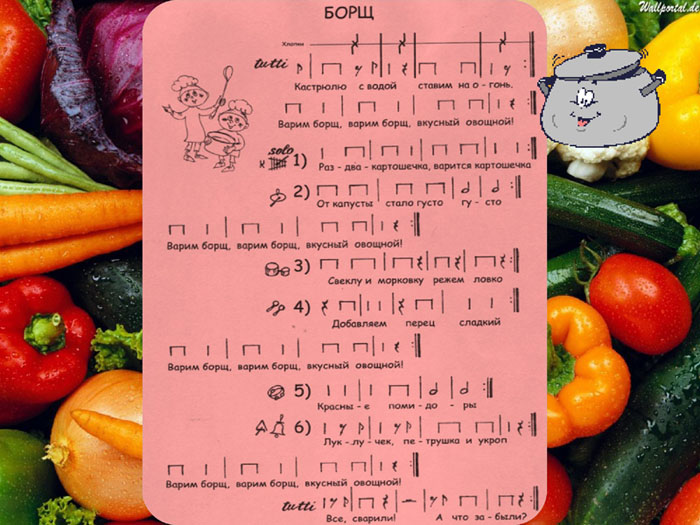 Wallportal.de
БОРЩ
Хлопки
tutti
Кастрюлю с водой ставим на о - гонь.
Варим борщ, варим борщ, вкусный овощной!
solo
x 1) Раз - два - картошечка, варится картошечка
2) От капусты стало густо гу - сто
Варим борщ, варим борщ, вкусный овощной!
3) Свеклу и морковку режем ловко
4) Добавляем перец сладкий
Варим борщ, варим борщ, вкусный овощной!
5) Красны - е поми - до - ры
6) Лук - лу - чек, пе - трушка и укроп
Варим борщ, варим борщ, вкусный овощной!
tutti
Все, сварили! А что за - были?